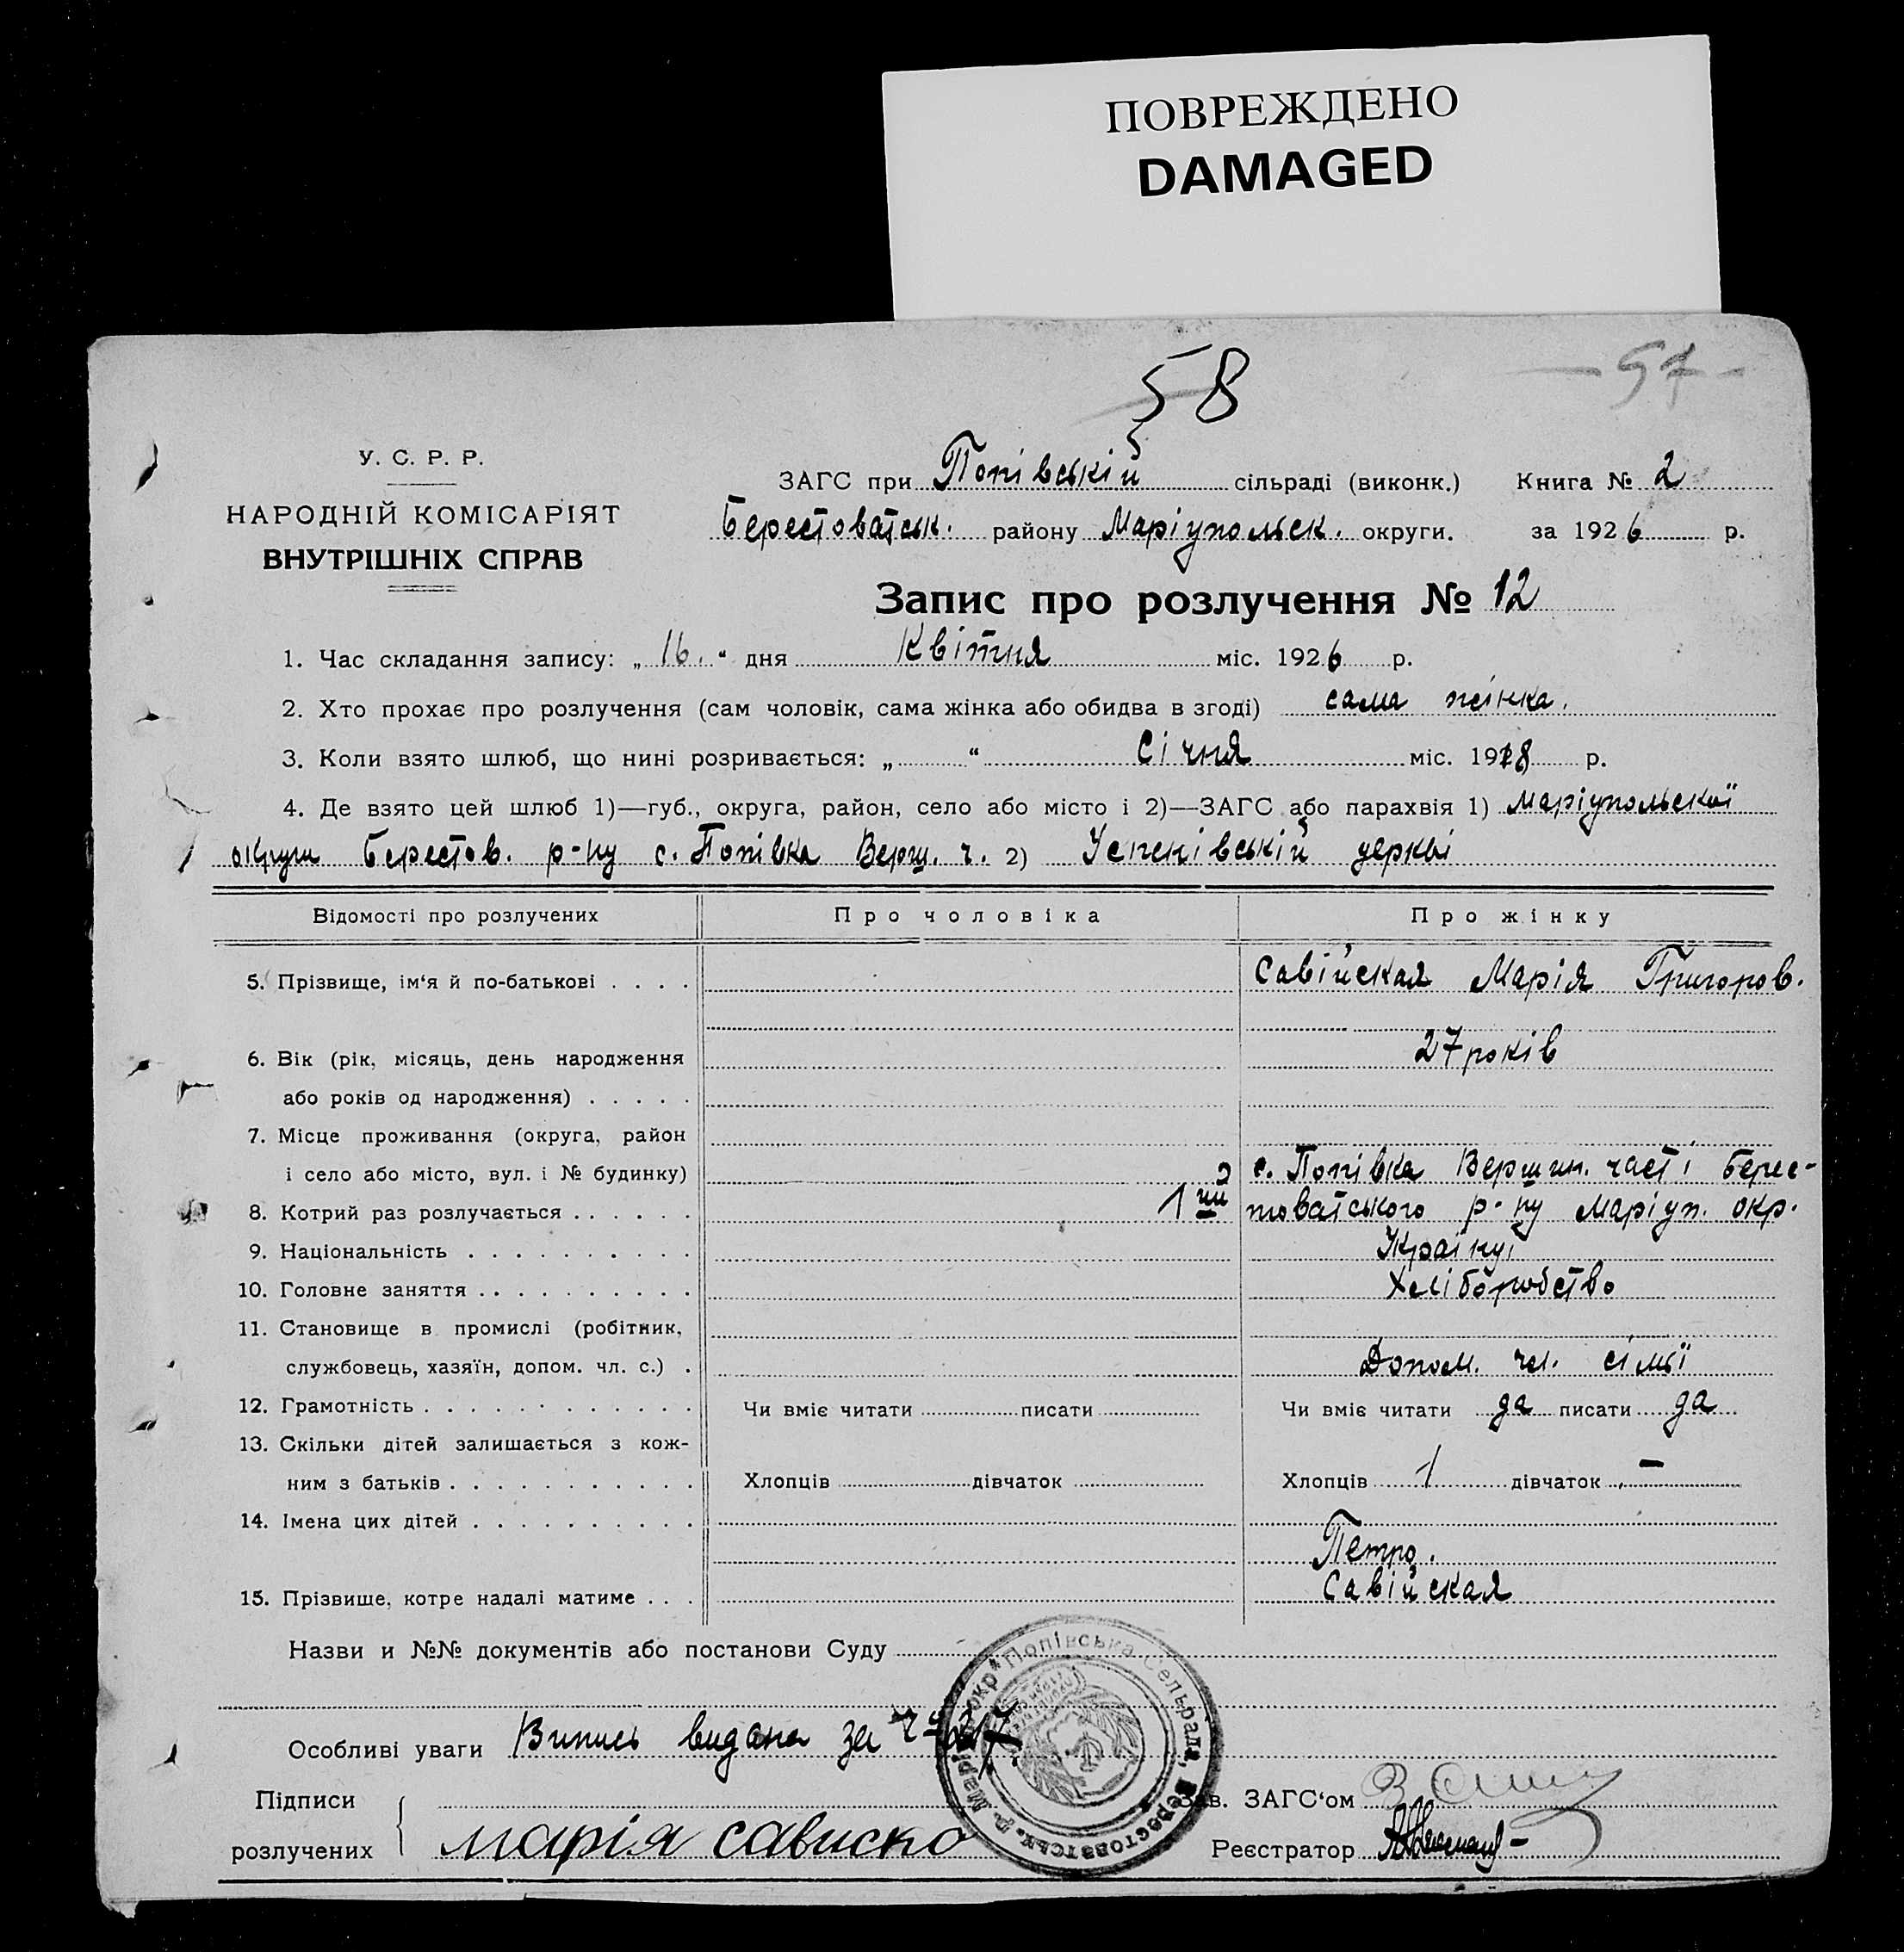 ПОВРЕЖДЕНО
DAMAGED
58
- 57 -
У. С. Р. Р.
НАРОДНІЙ КОМІСАРІЯТ
ВНУТРІШНІХ СПРАВ
ЗАГС при Попівській сільраді (виконк.) Книга № 2
Берестоватськ. району Маріупольск. округи. за 1926 р.
Запис про розлучення № 12
1. Час складання запису: „ 16. “ дня Квітня міс. 1926 р.
2. Хто прохає про розлучення (сам чоловік, сама жінка або обидва в згоді) сама жінка.
3. Коли взято шлюб, що нині розривається: „ “ Січня міс. 1918 р.
4. Де взято цей шлюб 1)—губ., округа, район, село або місто і 2)—ЗАГС або парахвія 1) Маріупольскої
округи Берестов. р-ну с. Попівка Верш. ч. 2) Успенівській церкві
Відомості про розлучених Про чоловіка Про жінку
5. Прізвище, ім‘я й по-батькові . . . . Савійская Марія Григоров.
6. Вік (рік, місяць, день народження 27 років
або років од народження) . . . . .
7. Місце проживання (округа, район
і село або місто, вул. і № будинку) с. Попівка Вершин. часті Берес-
8. Котрий раз розлучається . . . . . . 1 товатського р-ну Маріуп. окр.
9. Національність . . . . . . . . . . Україну
10. Головне заняття . . . . . . . . . . Хліборобство
11. Становище в промислі (робітник,
службовець, хазяїн, допом. чл. с.) . Допом. чл. сімьї
12. Грамотність . . . . . . . . . . . . Чи вміє читати писати Чи вміє читати да писати да
13. Скільки дітей залишається з кож-
ним з батьків . . . . . . . . . . . Хлопців дівчаток Хлопців 1 дівчаток —
14. Імена цих дітей . . . . . . . . . .
Петро.
15. Прізвище, котре надалі матиме . . . Савійская
Назви и №№ документів або постанови Суду
Попівська Сельрада, Берестоватськ. р. Маріюп. окр.
Особливі уваги Випись видана за
Підписи Зав. ЗАГС‘ом
розлучених марія сависко Реєстратор